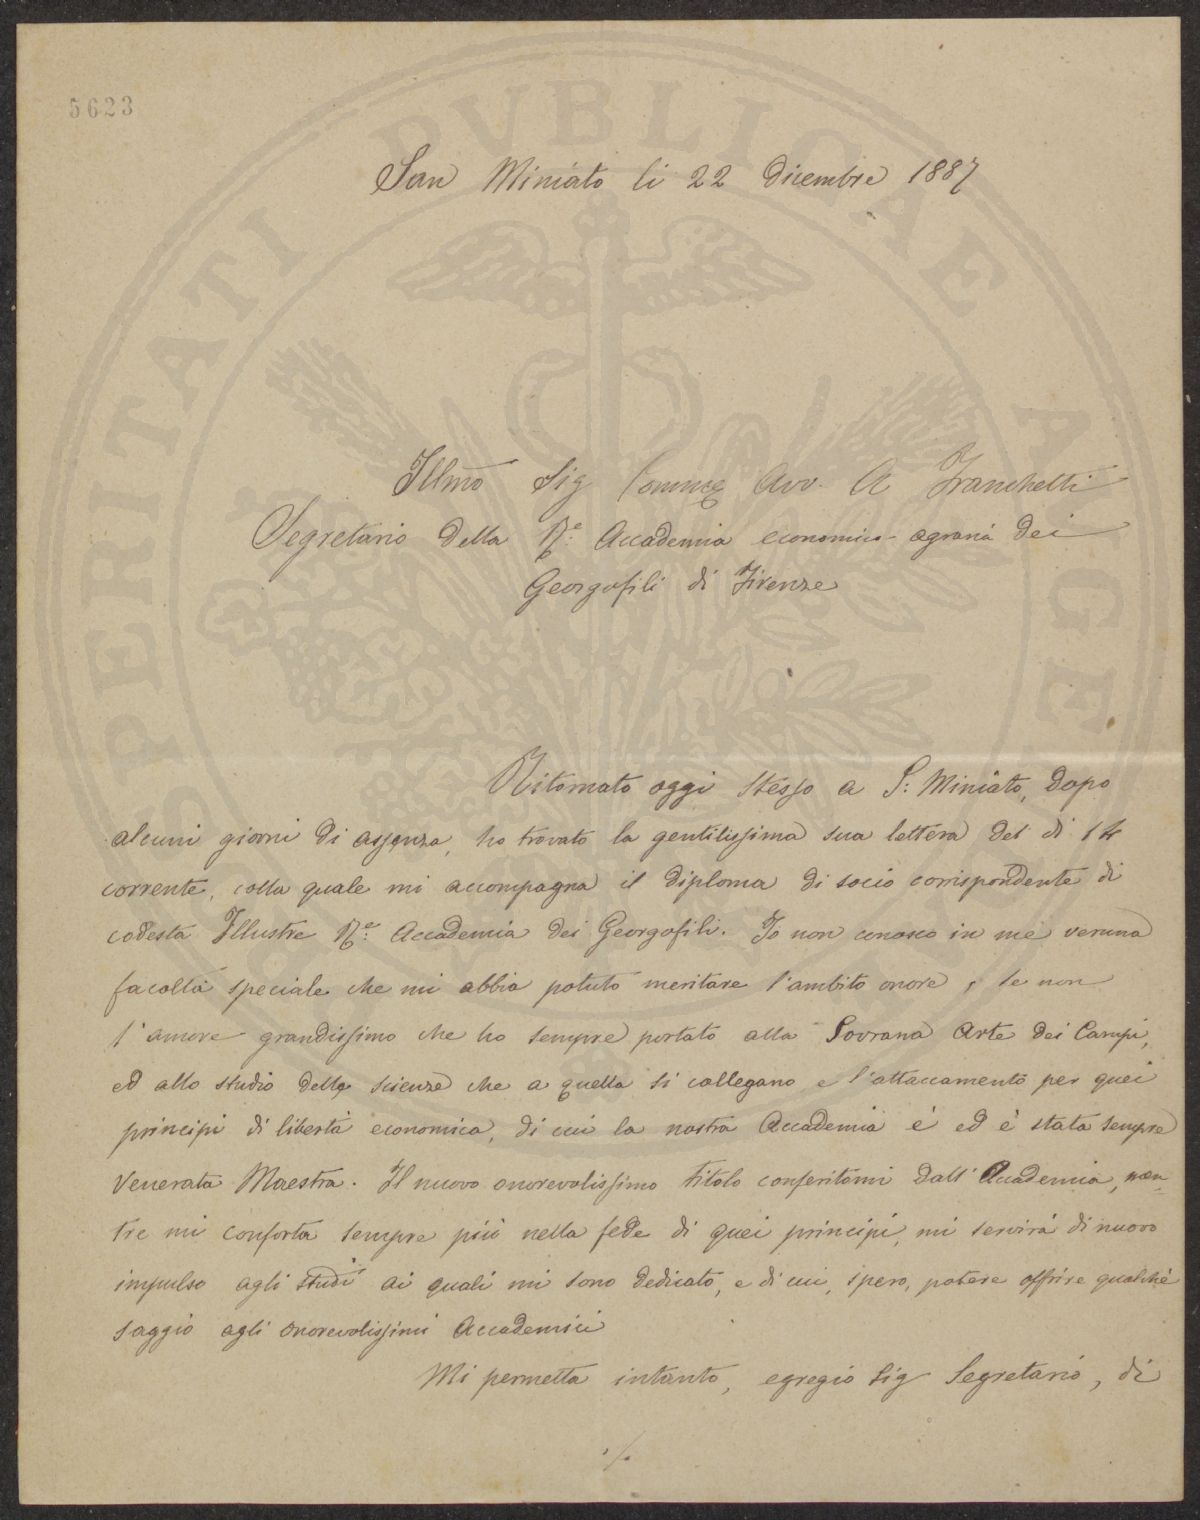 5623
San Miniato li 22 dicembre 1887
Illmo Sig Comm Avv. A Franchetti
Segretario della Re: Accademia economico-agraria dei
Georgofili di Firenze
Ritornato oggi stesso a S: Miniato, dopo
alcuni giorni di assenza, ho trovato la gentilissima sua lettera del dì 14
corrente, colla quale mi accompagna il diploma di socio corrispondente di
codesta Illustre Re: Accademia dei Georgofili. Io non conosco in me veruna
facoltà speciale che mi abbia potuto meritare l'ambito onore, se non
l'amore grandissimo che ho sempre portato alla Sovrana Arte dei Campi,
ed allo studio delle scienze che a quella si collegano e l'attaccamento per quei
principi di libertà economica, di cui la nostra Accademia è ed è stata sempre
Venerata Maestra. Il nuovo onorevolissimo titolo conferitomi dall'Accademia, men-
tre mi conforta sempre più nella fede di quei principi, mi servirà di nuovo
impulso agli studi ai quali mi sono dedicato, e di cui, spero, potere offrire qualche
saggio agli onorevolissimi Accademici
Mi permetta intanto, egregio Sig Segretario, di
./.
PROSPERITATI PVBLICAE AVGE